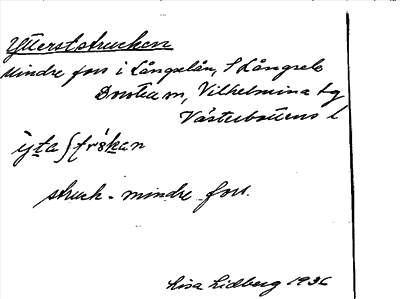 Ytterststrucken
Mindre fors i Långselån, S Långsele
Dorotea sn, Vilhelmina tg
Västerbottens l
struck - mindre fors.
Lisa Lidberg 1936